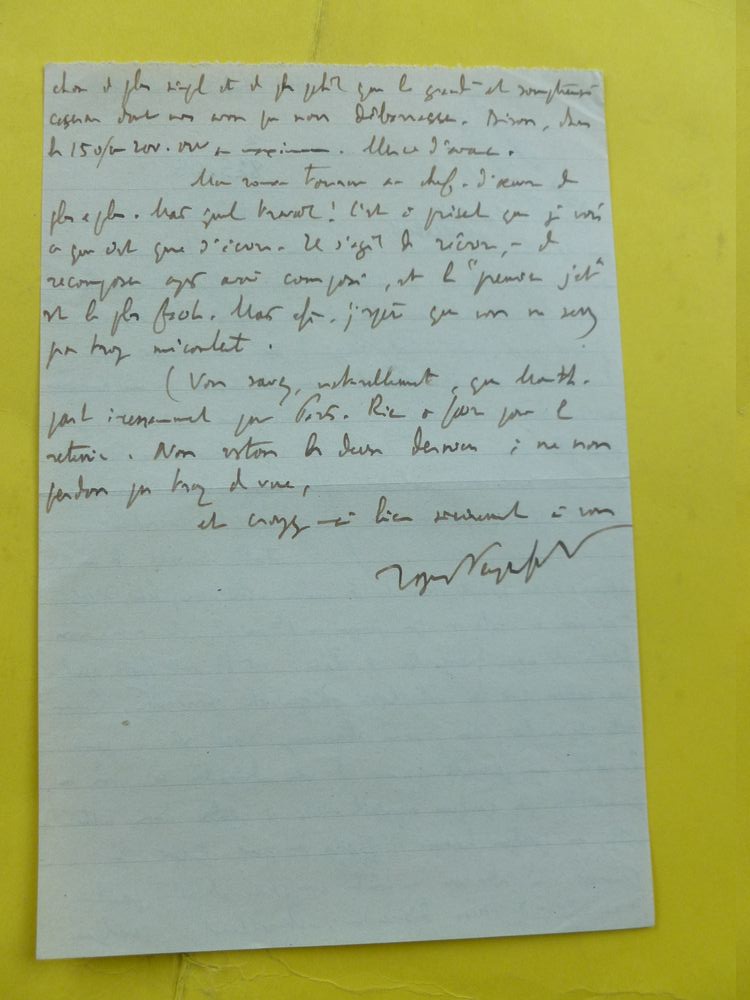 chose de plus simple et de plus petit que le grand et somptueux
dont nous nous débarrasser. Disons, dans
les 150/ 200.000 au maximum. Merci d'avance.
Mon roman tourne au chef-d'œuvre de
plus en plus. Mais quel travail ! C'est à présent que je vois
ce que c'est que d'écrire. Il s'agit de récrire, - de
recomposer après avoir composé, et le "premier jet"
est le plus facile. Mais enfin, j'espère que vous ne serez
pas trop mécontent.
(Vous savez, naturellement, que
part incessamment pour Paris. Rien à faire pour le
retenir. Nous restons les deux derniers ; ne nous
perdons pas trop de vue,
et croyez-moi bien sincèrement à vous
Roger